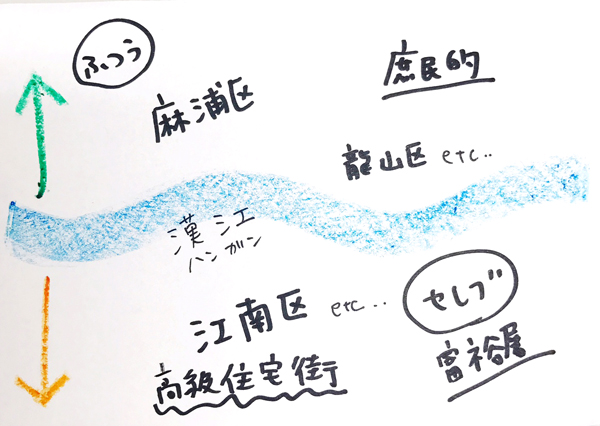 ふつう
庶民的
麻浦区
龍山区 etc..
漢江
ハンガン
江南区 etc...
セレブ
高級住宅街
富裕層